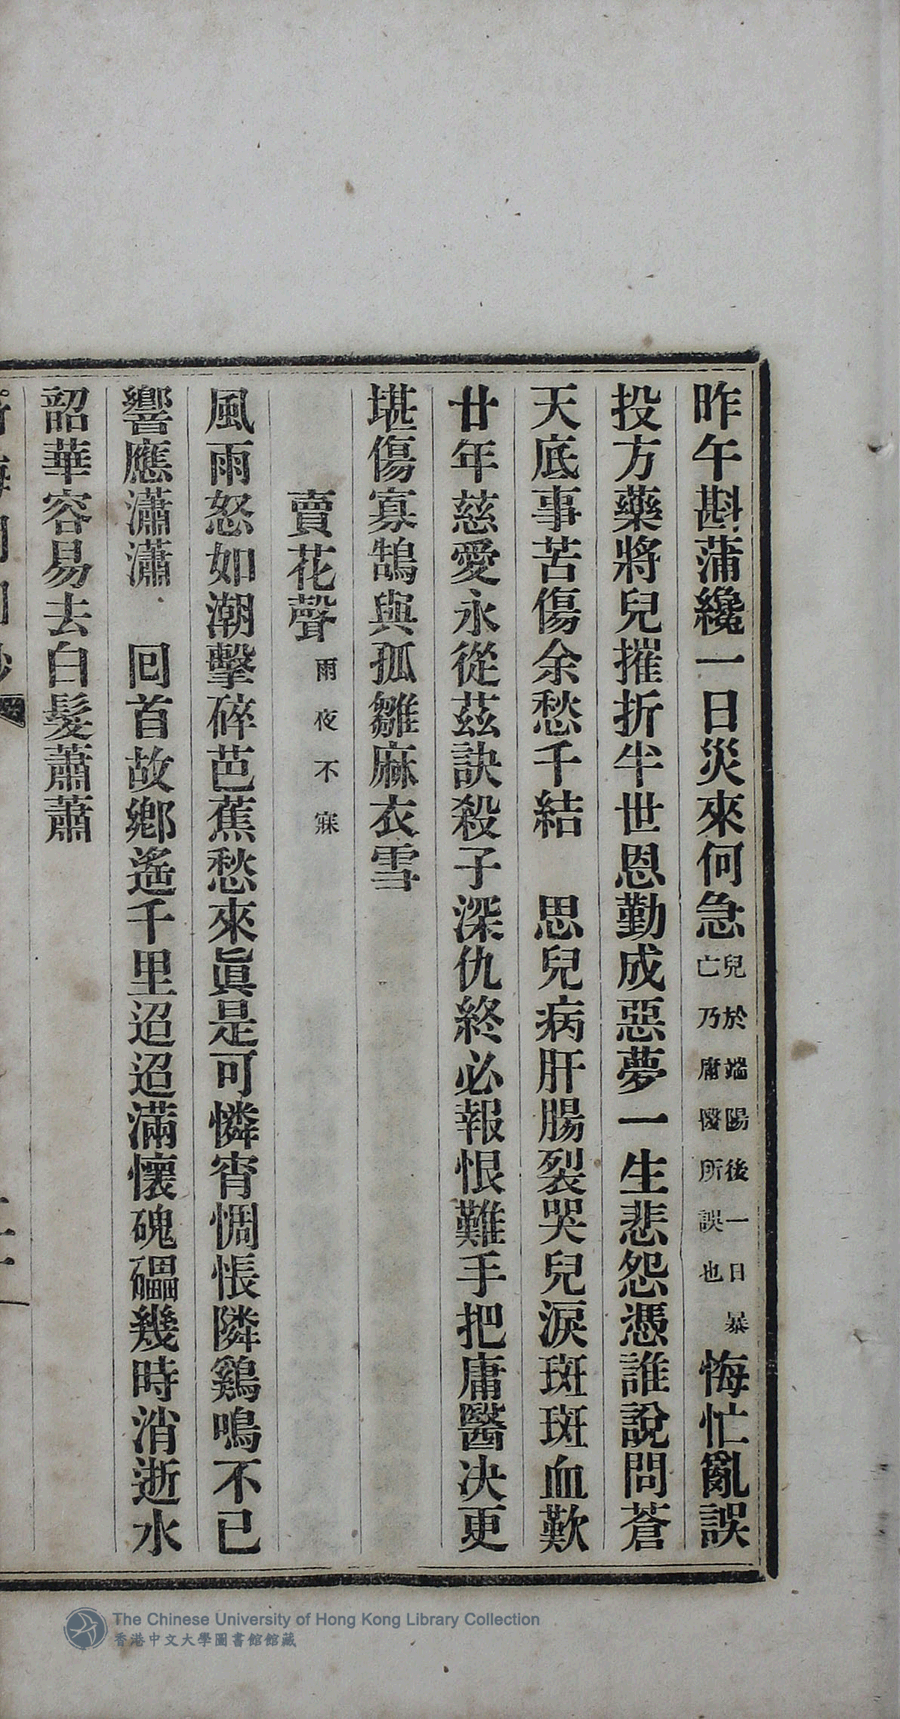 昨午斟蒲纔一日災來何急兒於端陽後一日暴亡乃庸醫所誤也悔忙亂誤
投方藥將兒摧折半世恩勤成惡夢一生悲怨憑誰說問蒼
天底事苦傷余愁千結　思兒病肝腸裂哭兒淚斑斑血歎
廿年慈愛永從茲訣殺子深仇終必報恨難手把庸醫決更
堪傷寡鵠與孤雛麻衣雪
賣花聲雨夜不寐
風雨怒如潮擊碎芭蕉愁來眞是可憐宵惆悵隣鷄鳴不已
響應瀟瀟　回首故鄉遙千里迢迢滿懷磈礧幾時消逝水
韶華容易去白髮蕭蕭
The Chinese University of Hong Kong Library Collection
香港中文大學圖書館館藏